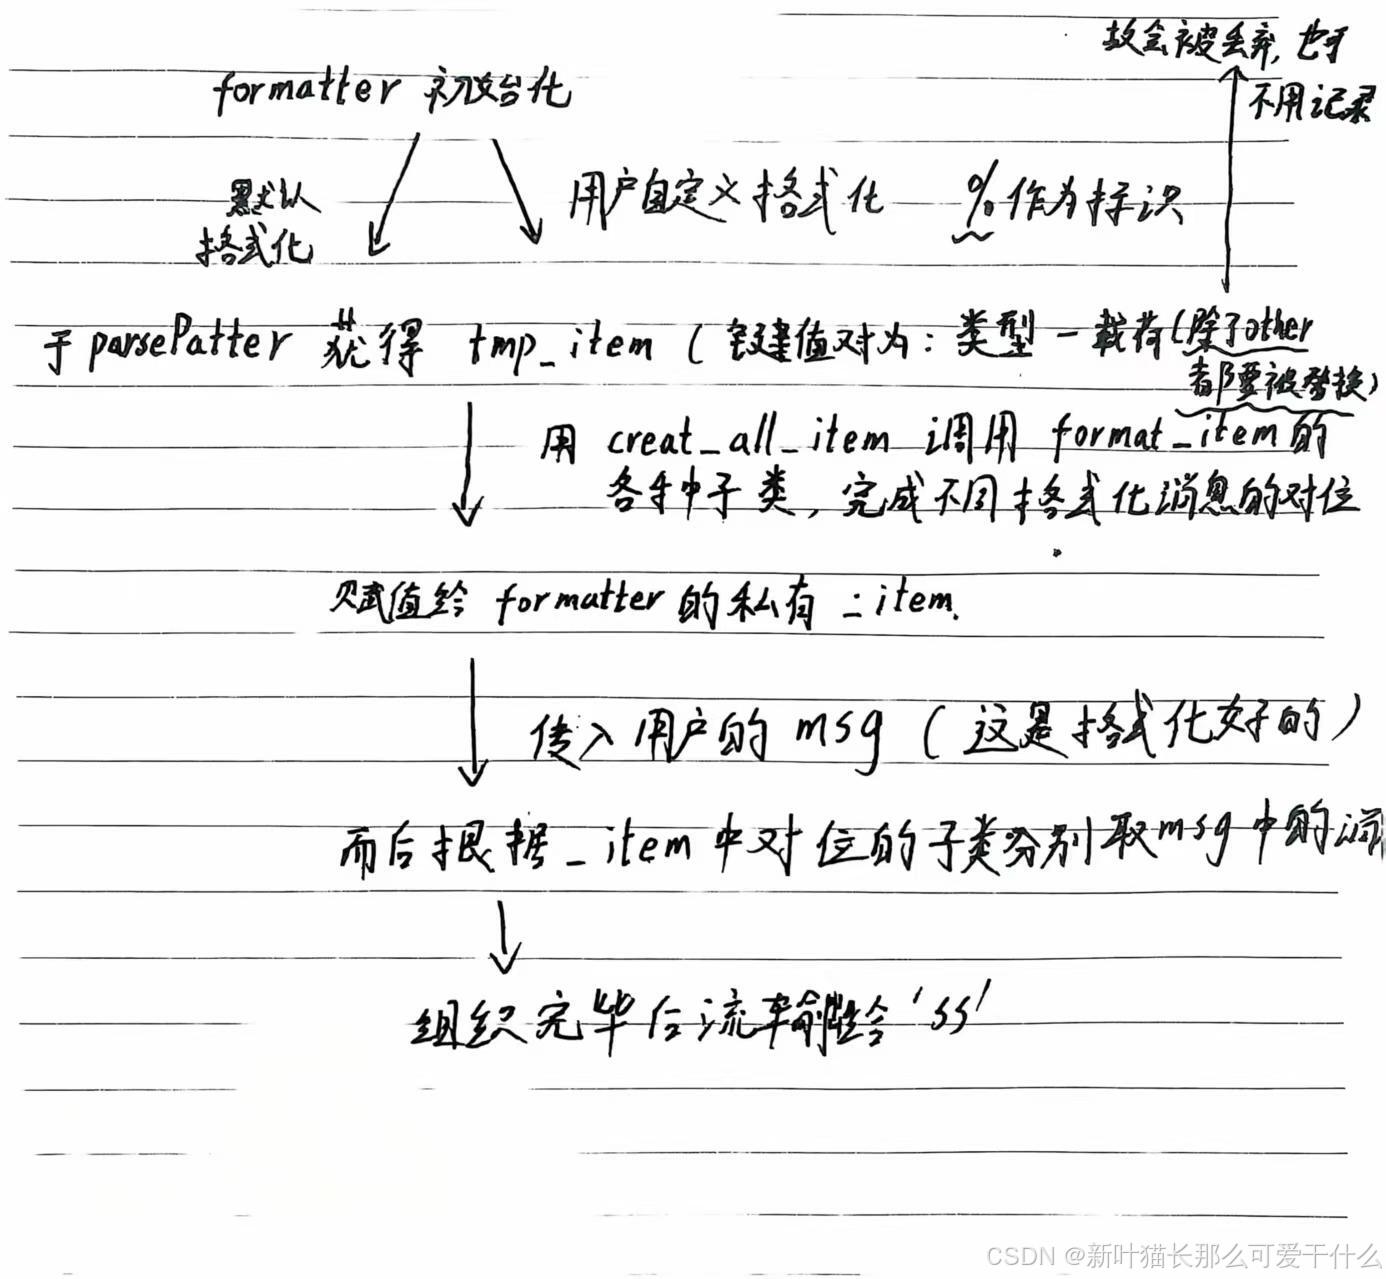 故会被丢弃, 也可
不用记录
formatter 初始化
默认
格式化
用户自定义格式化 %作为标识
于 parsePatter 获得 tmp_item (键值对为: 类型 - 载荷(除了other
都要被替换)
用 creat_all_item 调用 format_item的
各种子类, 完成不同格式化消息的对位
赋值给 formatter 的私有 _item.
传入用户的 msg (这是格式化好的)
而后根据_item中对位的子类分别取msg中的消
组织完毕后流输给 'ss'
CSDN @新叶猫长那么可爱干什么